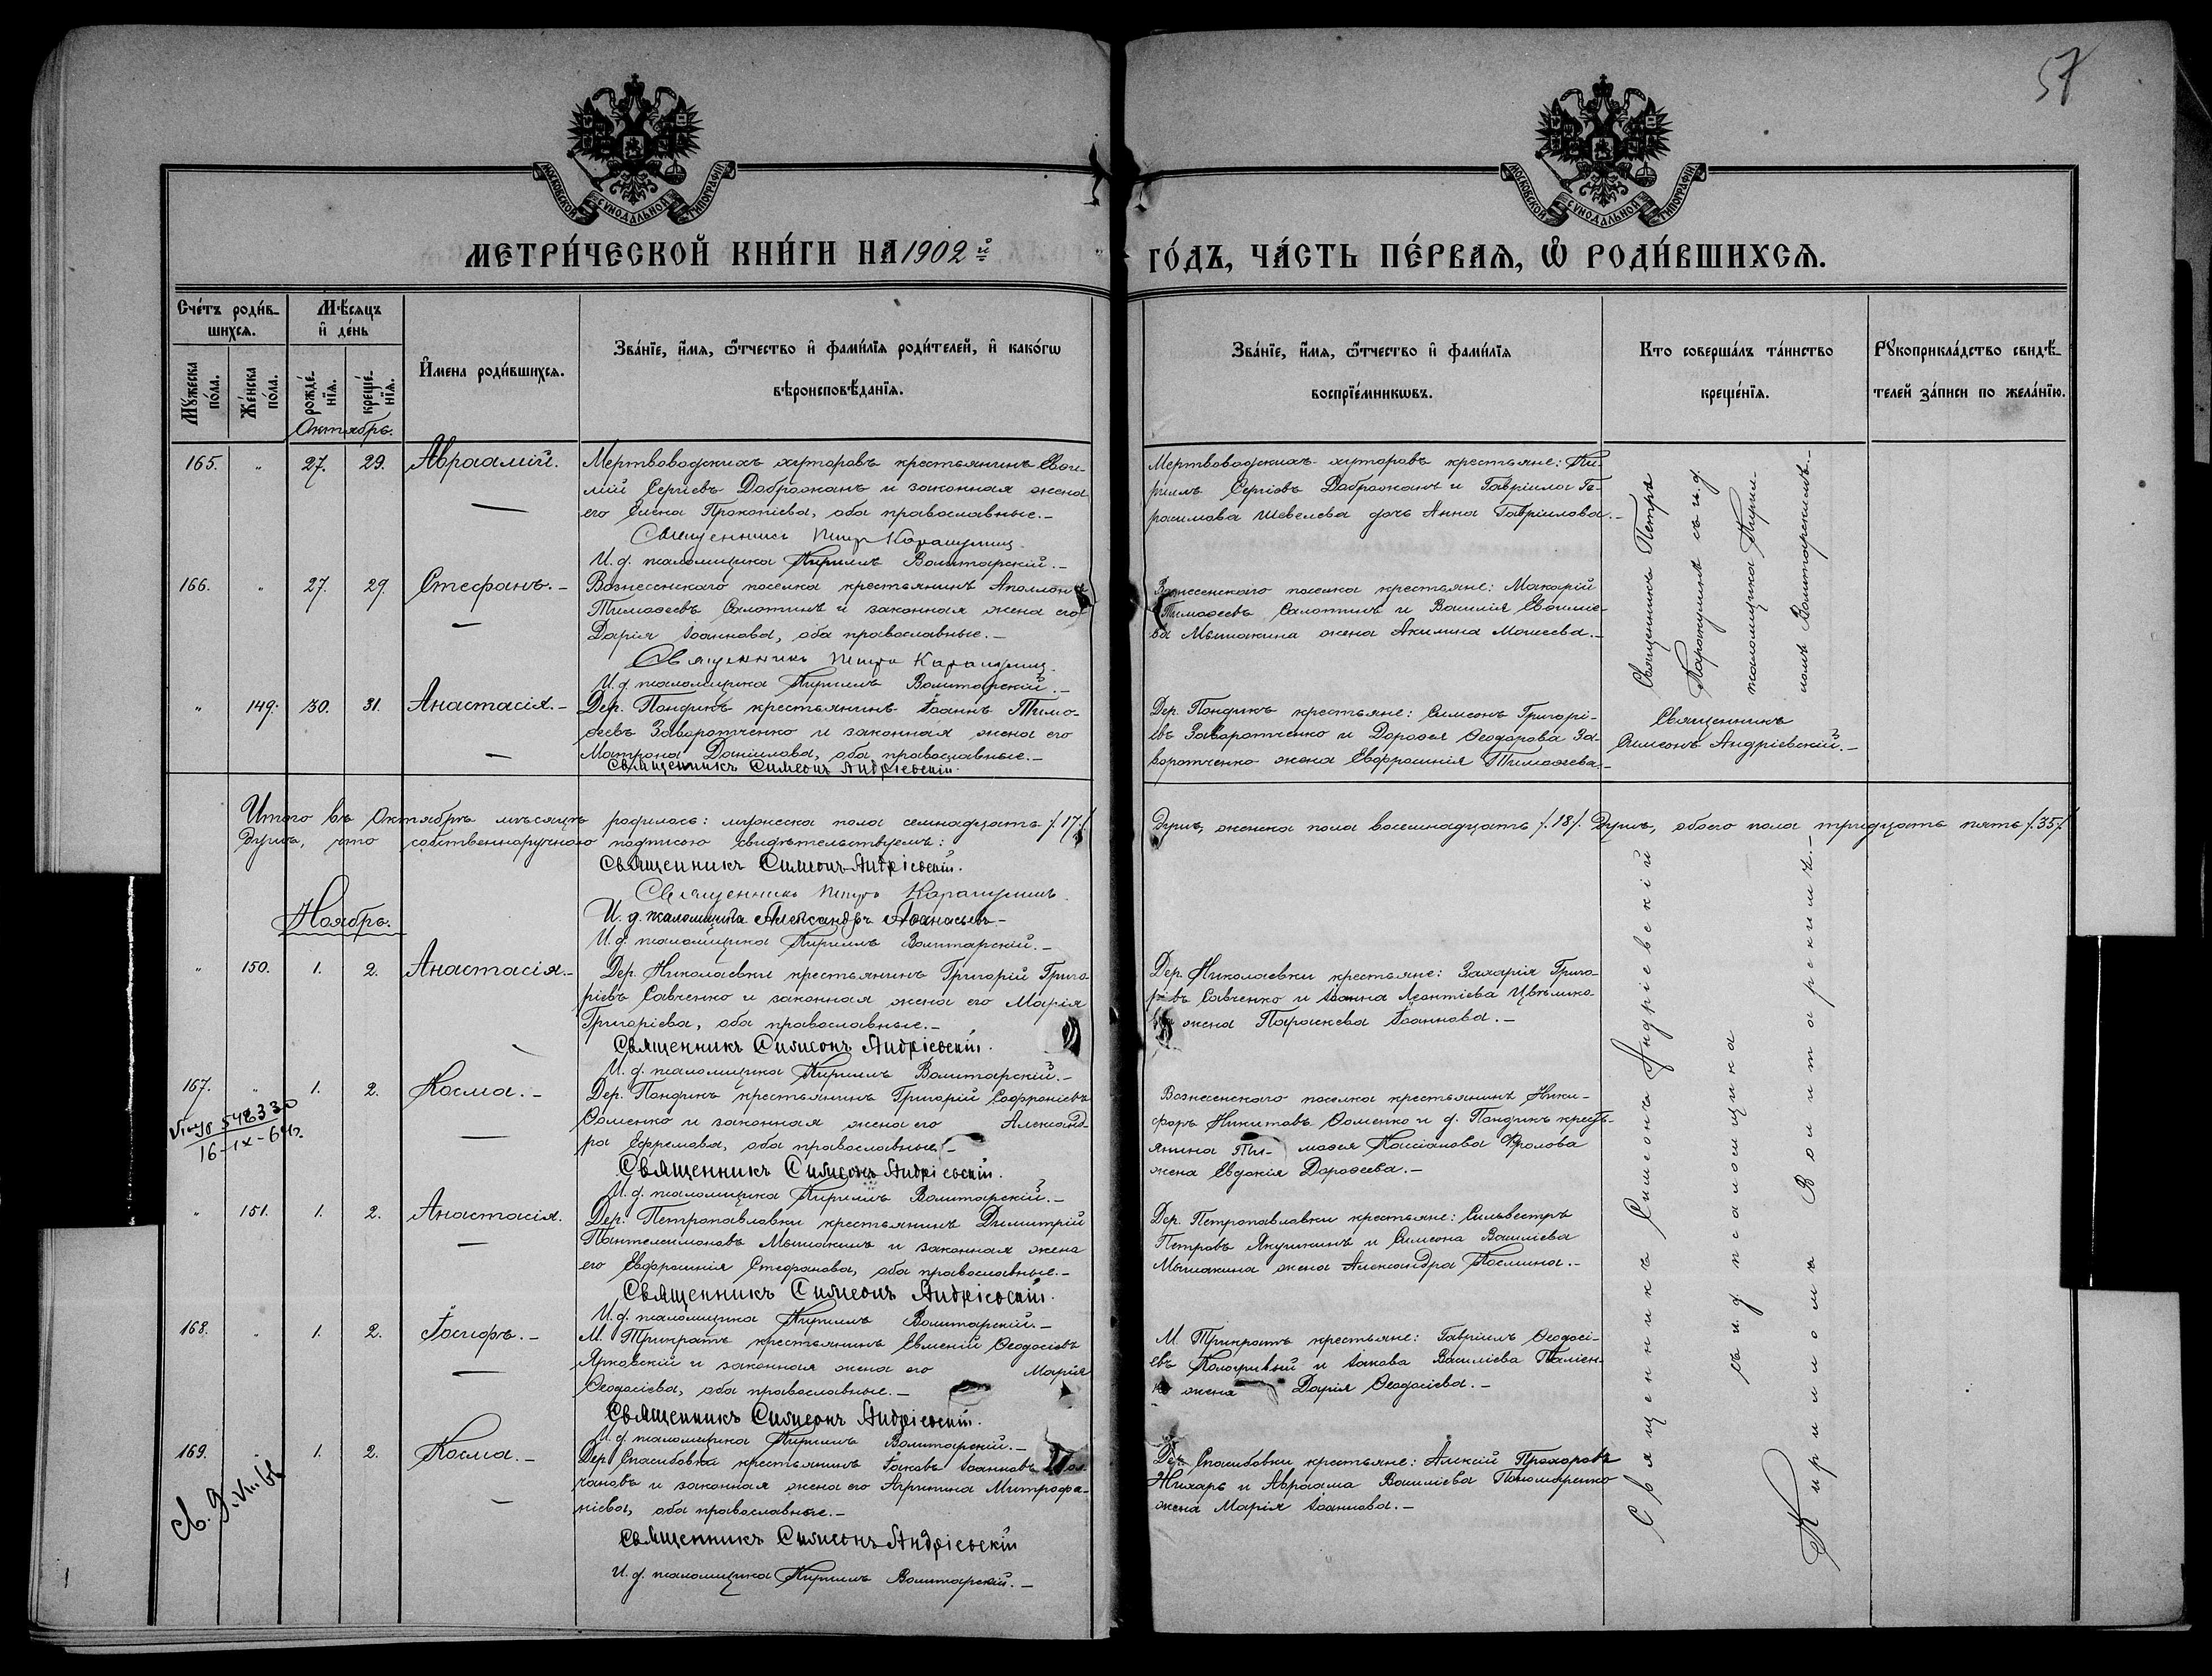 57
МОСКОВСКОЙ СѴНОДАЛЬНОЙ ТИПОГРАФІИ
МОСКОВСКОЙ СѴНОДАЛЬНОЙ ТИПОГРАФІИ
МЕТРИ́ЧЕСКОЙ КНИ́ГИ НА 1902й
ГО́ДЪ, ЧА́СТЬ ПЕ́РВАѦ, Ѡ҆ РОДИ́ВШИХСѦ.
Сче́тъ роди́в-
шихсѧ.
Мꙋ́жеска по́ла.
Же́нска по́ла.
Мѣ́сѧцъ
и҆ де́нь
рожде́нїѧ.
креще́нїѧ.
И҆мена роди́вшихсѧ.
Зва́нїе, и҆́мѧ, ѻ҆́тчество и҆ фами́лїѧ роди́телей, и҆ како́гѡ
вѣроисповѣ́данїѧ.
Зва́нїе, и҆́мѧ, ѻ҆́тчество и҆ фами́лїѧ
воспрїе́мникѡвъ.
Кто соверша́лъ та́инство
креще́нїѧ.
Рꙋкоприкла́дство свидѣ́-
телей за́писи по жела́нїю.
Октябрь.
165. " 27. 29. Авраамій.
Мертвоводскихъ хуторовъ крестьянинъ Евѳи-
мій Сергіевъ Доброжанъ и законная жена
его Елена Прокопіева, оба православные.-
Священникъ Петръ Карашулинъ
И. д. псаломщика Кириллъ Волитарскій.-
Мертвоводскихъ хуторовъ крестьяне: Ки-
риллъ Сергіевъ Доброжанъ и Гавріила Ге-
расимова Шевелева дочь Анна Гавріилова.-
166. " 27. 29. Стефанъ.-
Вознесенскаго поселка крестьянинъ Аполлонъ
Тимоѳеевъ Салотинъ и законная жена его
Дарія Іоаннова, оба православные.-
Священникъ Петръ Карашулинъ
И. д. псаломщика Кириллъ Волитарскій.-
Вознесенскаго поселка крестьяне: Макарій
Тимоѳеевъ Салотинъ и Василія Евѳиміе-
ва Мышакина жена Акилина Моисеева.-
Священникъ Петръ
Карашулинъ съ и. д.
псаломщика Кирил-
ломъ Волитарскимъ.-
" 149. 30. 31. Анастасія.-
Дер. Пандикъ крестьянинъ Іоаннъ Тимо-
ѳеевъ Заворотченко и законная жена его
Матрона Даніилова, оба православные.-
Священникъ Симеонъ Андріевскій.
Дер. Пандикъ крестьяне: Симеонъ Григорі-
евъ Заворотченко и Дороѳея Ѳеодорова За-
воротченко жена Евфросинія Тимоѳеева.-
Священникъ
Симеонъ Андріевскій.-
Итого въ Октябрѣ мѣсяцѣ родилось: мужеска пола семнадцать /.17./
душъ, женска пола восемнадцать /.18/. Душъ, обоего пола тридцать пять /.35/
Душъ, что собственноручною подписью свидѣтельствуемъ:
Священникъ Симеонъ Андріевскій.
Священникъ Петръ Карашулинъ.
И. д. псаломщика Александръ Аѳанасьевъ-
И. д. псаломщика Кириллъ Волитарскій.-
Ноябрь.
" 150. 1. 2. Анастасія.-
Дер. Николаевки крестьянинъ Григорій Григо-
ріевъ Савченко и законная жена его Марія
Григоріева, оба православные.-
Священникъ Симеонъ Андріевскій.
И. д. псаломщика Кириллъ Волитарскій.-
Дер. Николаевки крестьяне: Захарія Григо-
рьевъ Савченко и Іоанна Леонтіева
жена Параскева Іоаннова.-
167. " 1. 2. Косма.-
548330
16-IX-64г.
Дер. Пандикъ крестьянинъ Григорій Софроніевъ
Ѳоменко и законная жена его Александ-
ра Ефремова, оба православные.-
Священникъ Симеонъ Андріевскій.
И. д. псаломщика Кириллъ Волитарскій.-
Вознесенскаго поселка крестьянинъ Ники-
форъ Никитовъ Ѳоменко и д. Пандикъ кресть-
янина Ти- моѳея Кассіанова Фролова
жена Евдокія Дороѳеева.-
" 151. 1. 2. Анастасія.
Дер. Петропавловки крестьянинъ Димитрій
Пантелеимоновъ Мышакинъ и законная жена
его Евфросинія Стефанова, оба православные.-
Священникъ Симеонъ Андріевскій.
И. д. псаломщика Кириллъ Волитарскій.-
Дер. Петропавловки крестьяне: Сильвестръ
Петровъ Якушкинъ и Симеона Василіева
Мышакина жена Александра Космина.-
168. " 1. 2. Іосифъ.-
М. Трикратъ крестьянинъ Евменій Ѳеодосіевъ
Ярковскій и законная жена его Марія
Ѳеодосіева, оба православные.-
Священникъ Симеонъ Андріевскій.
И. д. псаломщика Кириллъ Волитарскій.-
М. Трикратъ крестьяне: Гавріилъ Ѳеодосі-
евъ Кологривый и Іакова Василіева
жена Дарія Ѳеодосіева.-
169. " 1. 2. Косма.-
Дер. Спасибовки крестьянинъ Іаковъ Іоанновъ
чановъ и законная жена его Агрипина Митрофа-
ніева, оба православные.-
Священникъ Симеонъ Андріевскій
И. д. псаломщика Кириллъ Волитарскій.-
Дер. Спасибовки крестьяне: Алексій Прохоровъ
Жихарь и Авраама Василіева Пономаренко
жена Марія Іоаннова.-
Священникъ Симеонъ Андріевскій
съ и. д. псаломщика
Кирилломъ Волитарскимъ.-